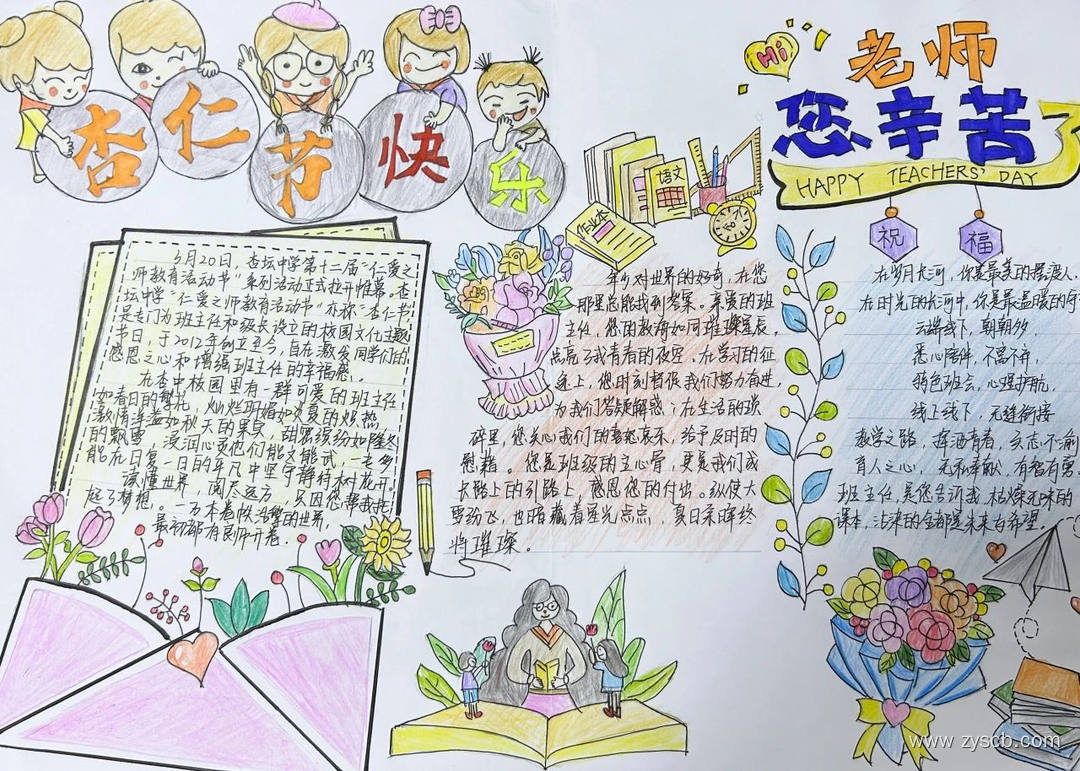 杏仁节快乐
Hi
老师
您辛苦了
HAPPY TEACHERS' DAY
祝 福
语文
作业本
3月20日，杏坛中学第十二届“仁爱之
师教育活动节”系列活动正式拉开帷幕。杏
坛中学“仁爱之师教育活动节”亦称“杏仁节”
是专门为班主任和级长设立的校园文化主题
节日，于2012年创立至今，旨在激发同学们的
感恩之心和增强班主任的幸福感。
在杏中校园里有一群可爱的班主任
如春日的
激情洋溢如秋天的果实，甜蜜缤纷如隆冬
的飘雪，浸润心灵他们能文能武
能在日复一日的年凡中坚守静待树花开，
读懂世界，阅尽远方，只因您帮我托
起了梦想。一万本
幕初都有良师开卷。
年少对世界的好奇，在您
那里总能找到答案。亲爱的班
主任，您的教诲如同璀璨星辰，
点亮了我青春的夜空。在学习的征
途上，您时刻督促我们努力奋进，
为我们答疑解惑；在生活的琐
碎里，您关心我们的喜怒哀乐，给予及时的
慰藉。您是班级的主心骨，更是我们成
长路上的引路上，感恩您的付出。纵使大
雪纷飞，也暗藏着星光点点，夏日未晚终
将璀璨。
在岁月长河，你是最美的摆渡人，
在时光的长河中，你是最温暖的
云端线下，朝朝夕夕
悉心陪伴，不离不弃，
特色班会，心理护航，
线上线下，无缝衔接
教学之路，挥洒青春，矢志不渝
育人之心，无私奉献，有智有勇
班主任，是您告诉我，枯燥无味的
课本，沾染的全都是未来与希望。
www.zyscb.com